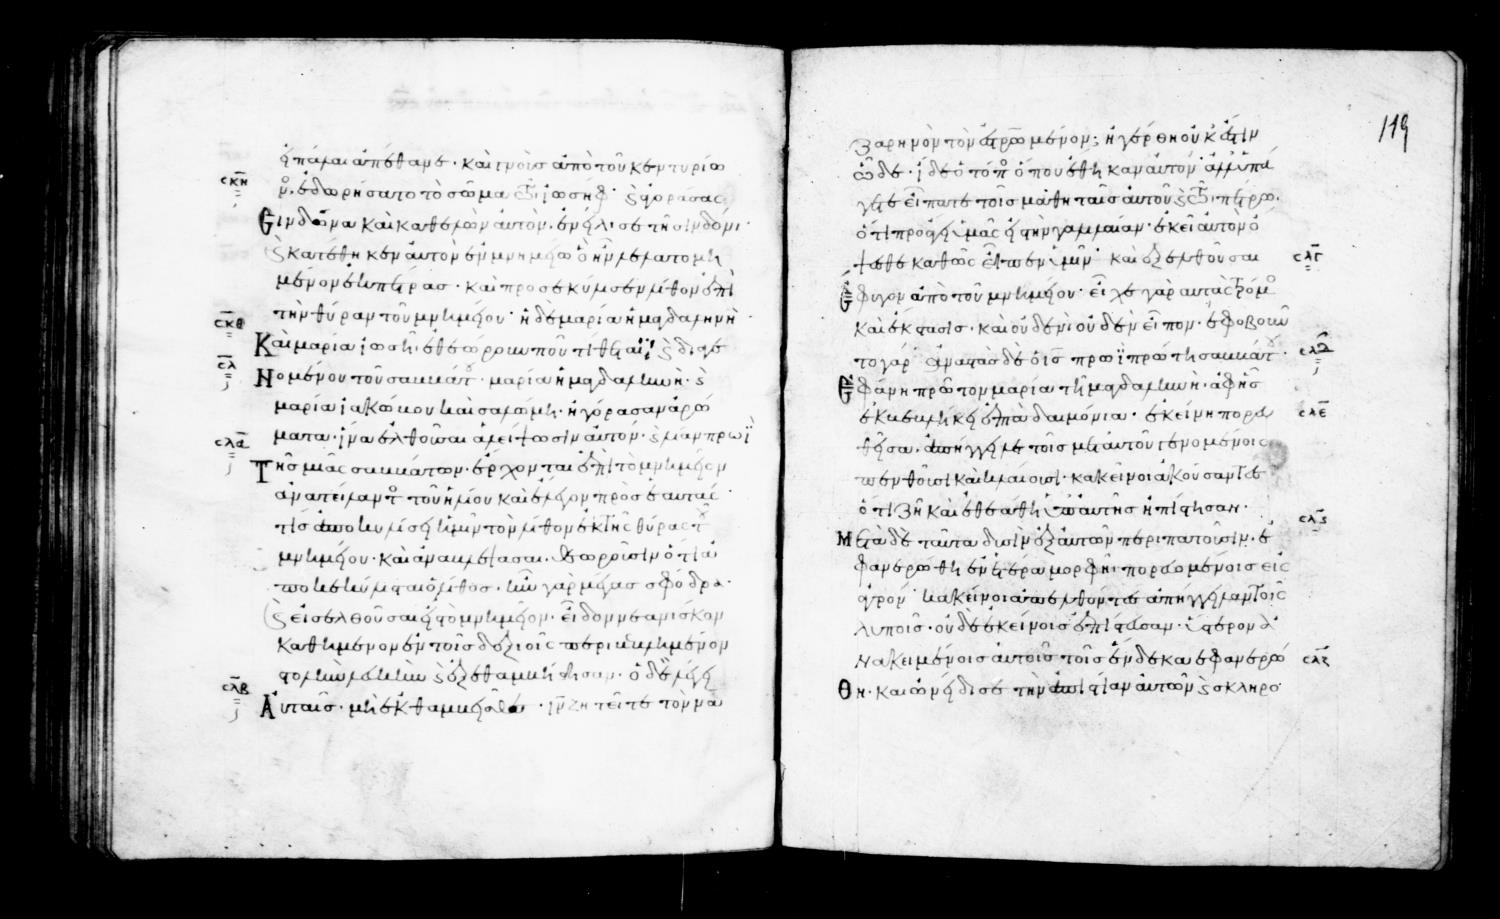 εἰ πάλαι ἀπέθανε· καὶ γνοὺς ἀπὸ τοῦ κεντυρίω
σκη
νο ἐδωρήσατο τὸ σῶμα τῶ ἰωσήφ· ϗ ἀγοράσας
Σινδόνα καὶ καθελὼν αὐτὸν· ἐνείλισε τῆ σινδόνι·
ϗ κατέθηκεν αὐτὸν ἐν μνημείω ὃ ἦν λελατομη
μένον ἐκ πέτρας· καὶ προσεκύλισεν λίθον ἐπὶ
τὴν θύραν τοῦ μνημείου· ἡ δὲ μαρία ἡ μαγδαληνὴ
σκθ
Καὶ μαρία ἰωσῆ· ἐθεώρουν ποῦ τίθεται· ϗ διαγε
σλ
Νομένου τοῦ σαββάτ· μαρία ἡ μαγδαληνὴ· ϗ
μαρία ἰακώβου καὶ σαλώμη· ἠγόρασαν ἀρώ
ματα· ἵνα ἐλθοῦσαι ἀλείψωσιν αὐτόν· ϗ λίαν πρωῒ
σλα
Τῆς μιᾶς σαββάτων· ἔρχονται ἐπὶ τὸ μνημεῖον
ἀνατείλαντο τοῦ ἡλίου καὶ ἔλεγον πρὸς ἑαυτάς·
τίς ἀποκυλίσει ἡμῖν τὸν λίθον ἐκ τῆς θύρας τ
μνημείου· καὶ ἀναβλέψασαι θεωροῦσιν ὅτι ἀ
ποκεκύλισται ὁ λίθος· ἦν γὰρ μέγας σφόδρα·
ϗ εἰσελθοῦσαι εἰς τὸ μνημεῖον· εἶδον νεανίσκον
καθήμενον ἐν τοῖς δεξιοῖς περιβεβλημένον
στολὴν λευκὴν ϗ ἐξεθαμβήθησαν· ὁ δὲ λέγει
σλβ
Αὐταῖς· μὴ ἐκθαμβεῖσθε· ἰν ζητεῖτε τὸν να
119
ζαρηνὸν τὸν ἐστρωμένον; ἠγέρθη οὐκ ἔστιν
ὧδε· ἴδε ὁ τόπο ὅπου ἔθηκαν αὐτόν· ἀλλ' ὑπά
γετε εἴπατε τοῖς μαθηταῖς αὐτοῦ ϗ τῶ πέτρω·
ὅτι προάγει ὑμᾶς εἰς τὴν γαλιλαίαν· ἐκεῖ αὐτὸν ὄ
ψεσθε καθὼς εἶπεν ὑμῖν· καὶ ἐξελθοῦσαι
σλγ
ἔφυγον ἀπὸ τοῦ μνημείου· εἶχε γὰρ αὐτὰς τρόμο
καὶ ἔκστασις· καὶ οὐδενὶ οὐδὲν εἶπον· ἐφοβοῦν
το γάρ· ἀναστὰς δὲ ὁ ις πρωῒ πρώτη σαββάτ·
σλδ
ἐφάνη πρῶτον μαρία τῆ μαγδαληνὴ· ἀφ' ἧς
ἐκβεβλήκει ἑπτὰ δαιμόνια· ἐκείνη πορευ
σλε
θεῖσα· ἀπήγγειλε τοῖς μετ' αὐτοῦ γενομένοις
πενθοῦσι καὶ κλαίουσι· κακεῖνοι ἀκούσαντες
ὅτι ζῆ καὶ ἐθεάθη ὑπ' αὐτῆς ἠπίστησαν·
σλς
Μετὰ δὲ ταῦτα δυσὶν ἐξ αὐτῶν περιπατοῦσιν· ἐ
φανερώθη ἐν ἑτέρα μορφῆ· πορευομένοις εἰς
ἀγρόν· κακεῖνοι ἀπελθόντες ἀπήγγειλαν τοῖς
λυποῖς· οὐδὲ ἐκείνοις ἐπίστευσαν· ὕστερον ἀ
νακειμένοις αὐτοῖς τοῖς ἕνδεκα ἐφανερώ
σλζ
Θη· καὶ ὠνείδισε τὴν ἀπιστίαν αὐτῶν ϗ σκληρο